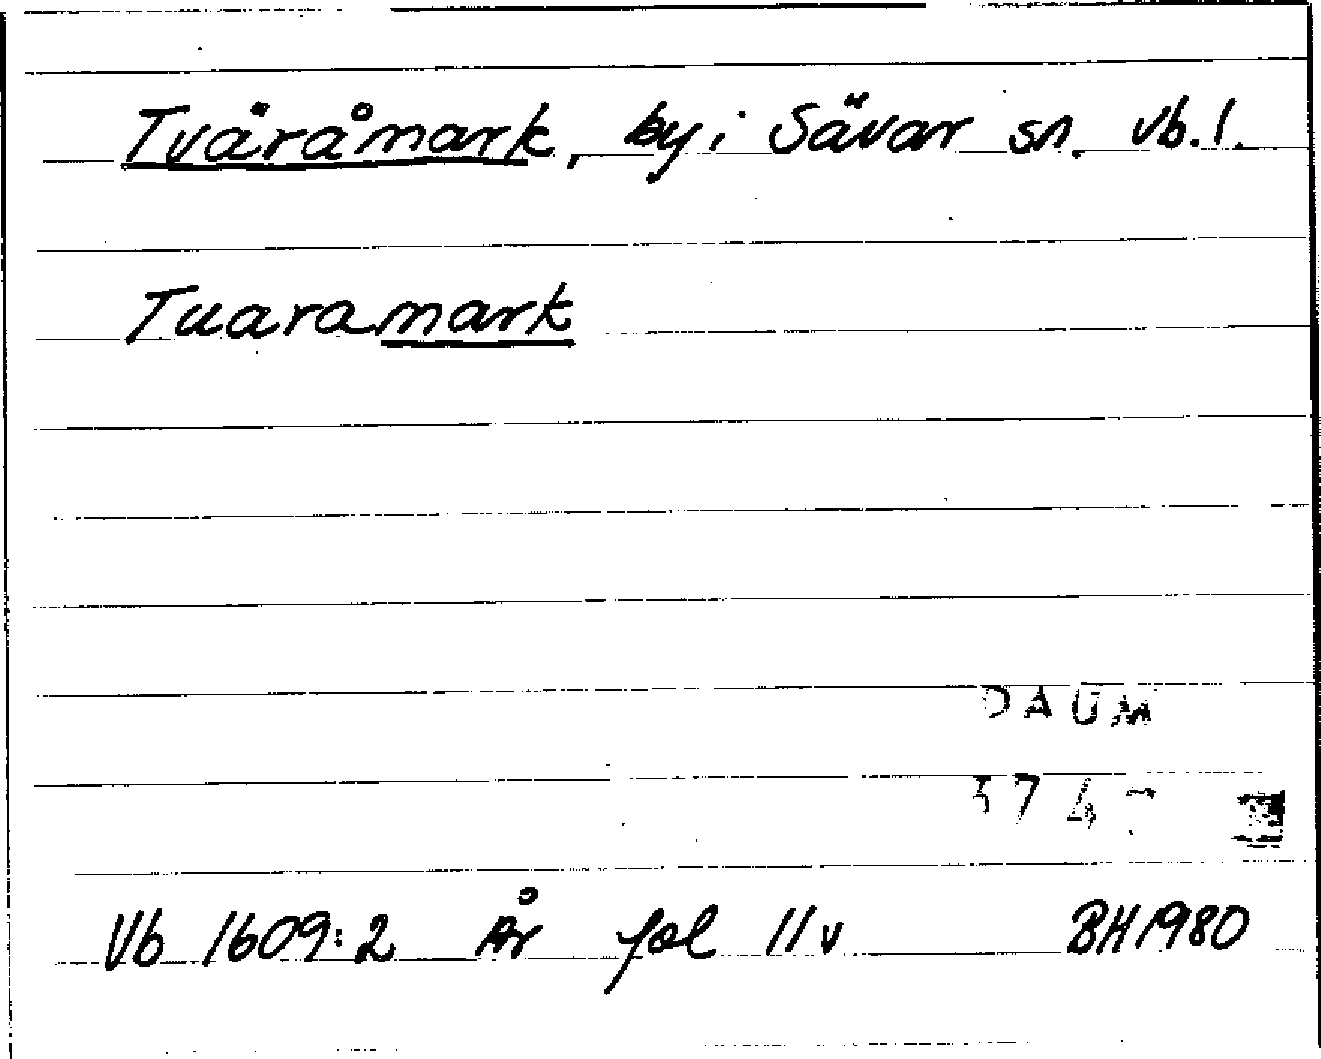 Tväråmark, by i Sävar sn. Vb. l.
Tuaramark
DAUM
Vb 1609:2 År fol 11 v BH 1980